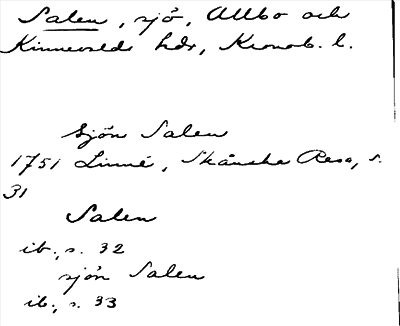 Salen, sjö, Allbo och
Kinnevalds hdr, Kronob. l.
Sjön Salen
1751 Linné, Skånska Resa, s.
31
Salen
ib., s. 32
sjön Salen
ib., s. 33